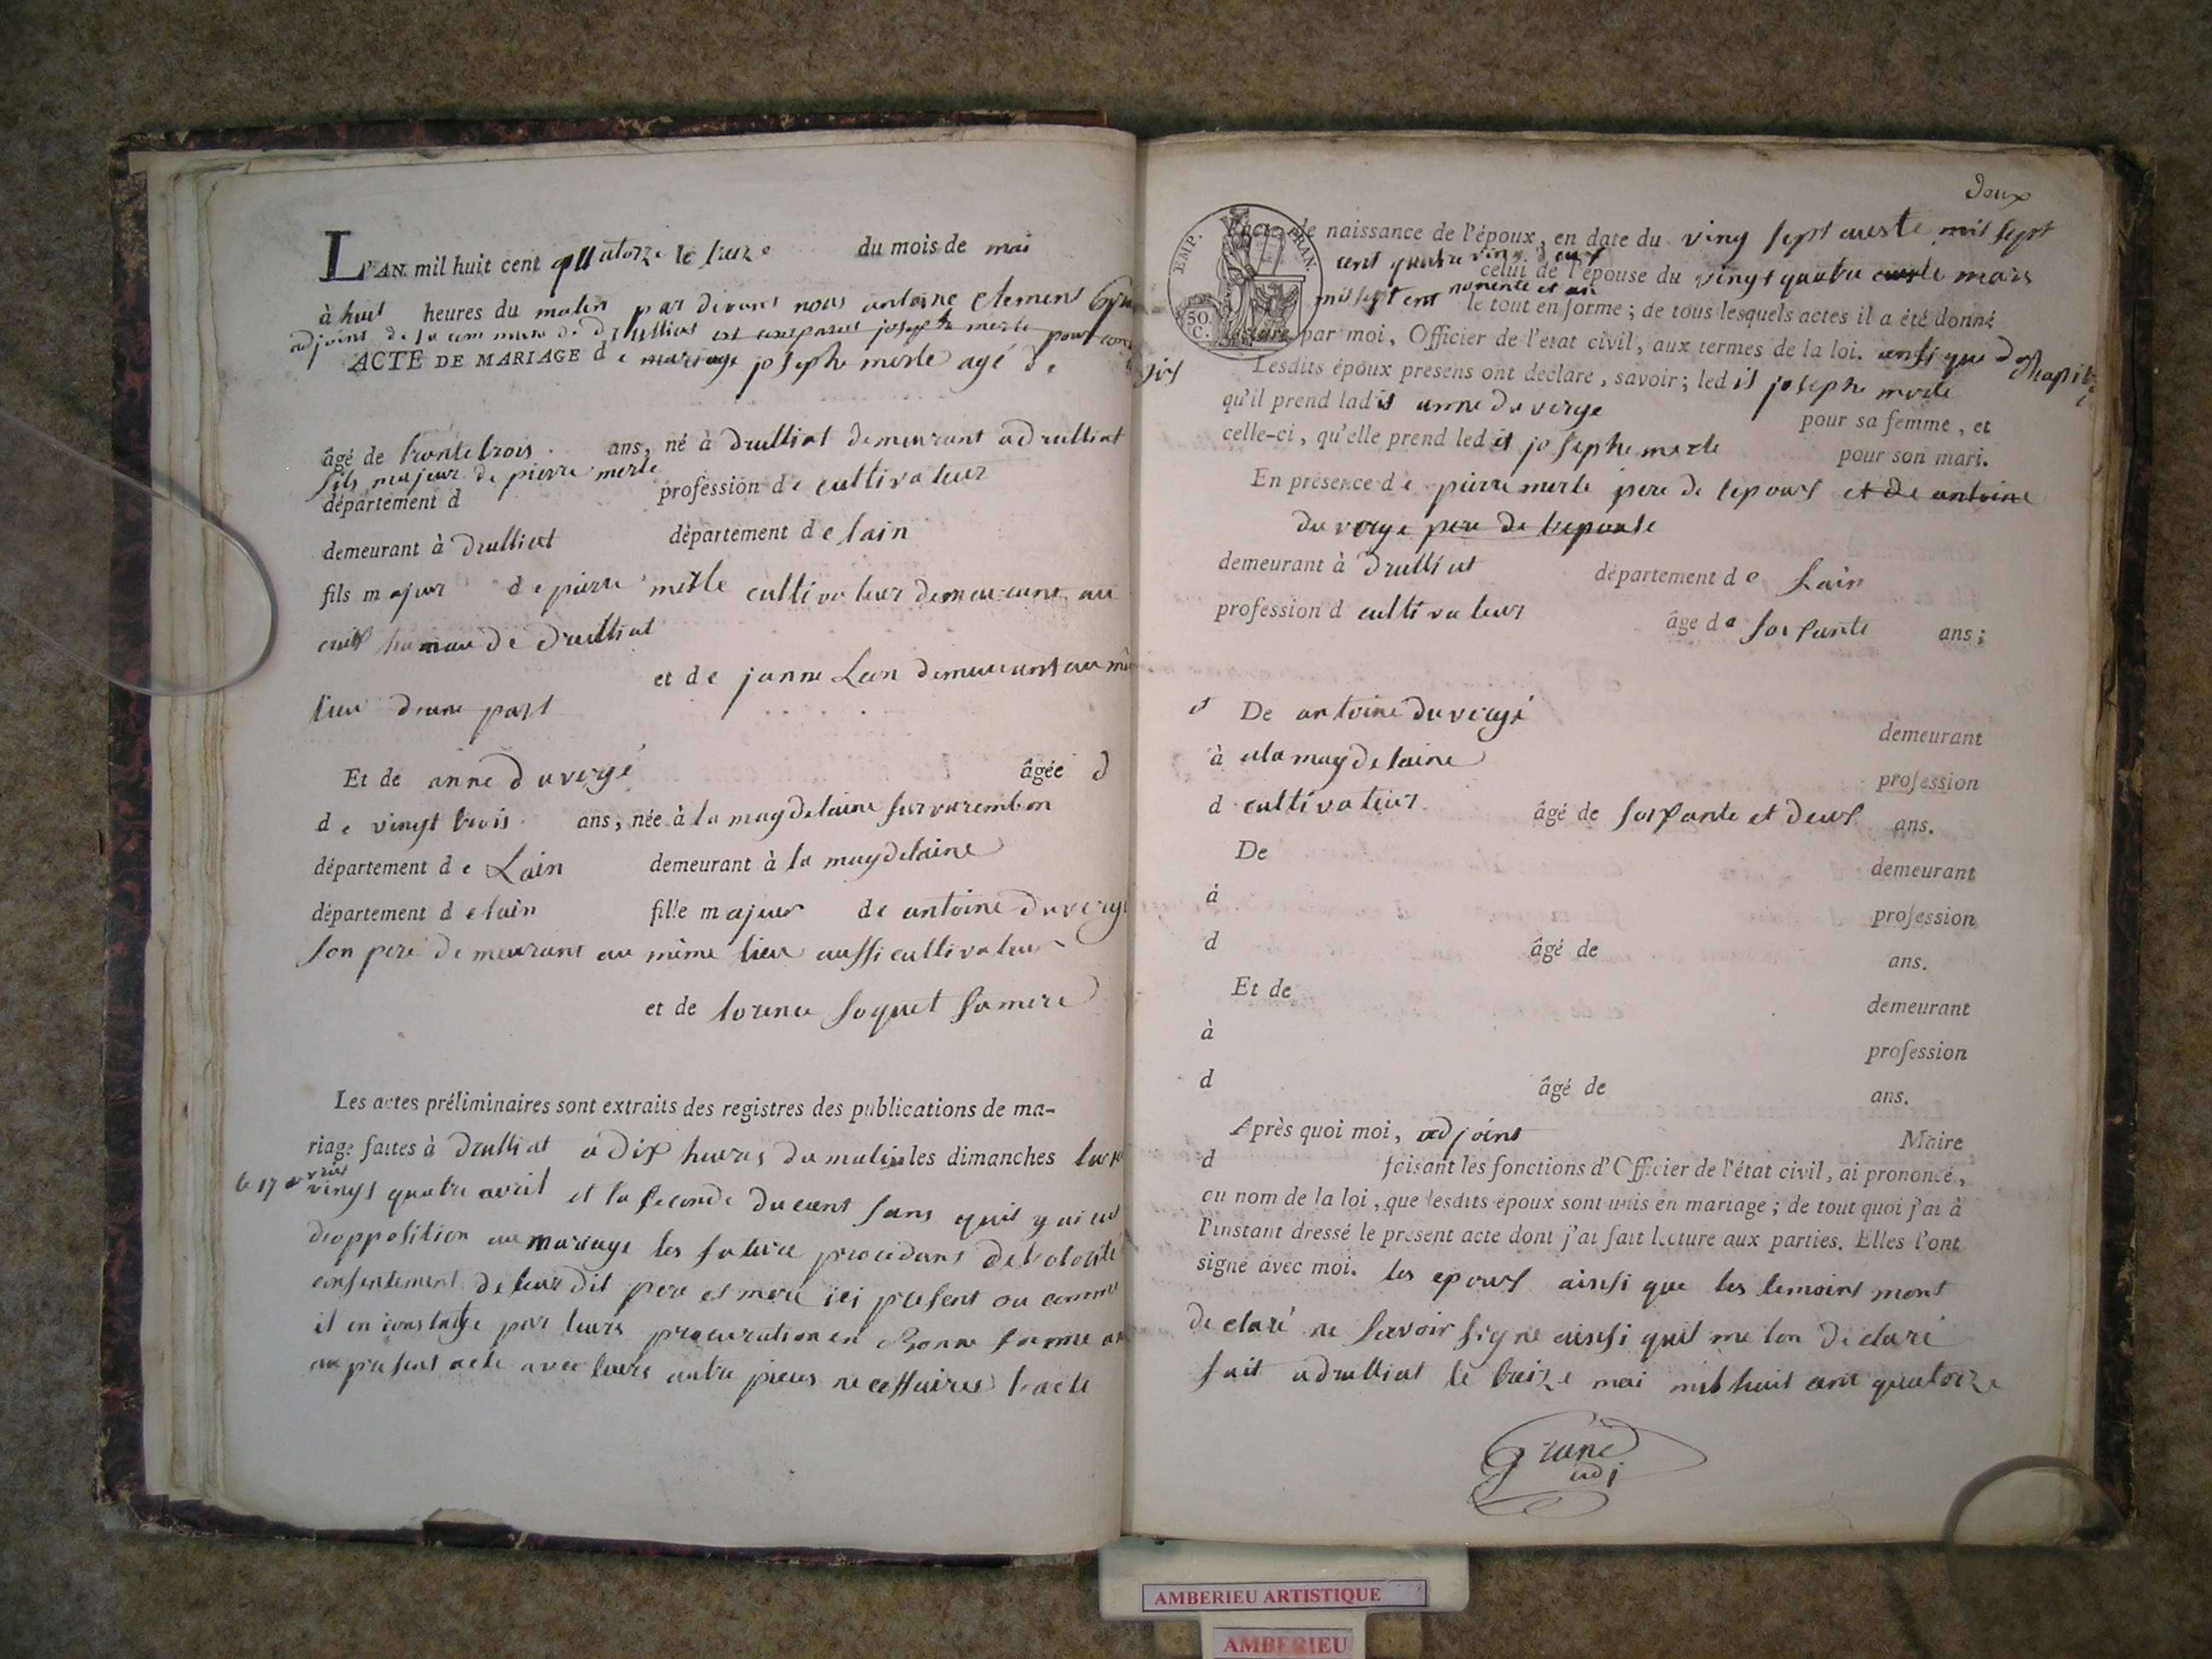 L'AN mil huit cent quatorze le treize du mois de mai
à huit heures du matin par devant nous antoine Clement
adjoint de la commune de druilliat est comparus josephe merle pour
ACTE DE MARIAGE de mariage josephe merle agé de
âgé de trantetrois ans, né à druilliat demeurant a druilliat
fils majeur de pierre merle
département d profession de cultivateur
demeurant à druilliat département de lain
fils majeur de pierre merle cultivateur demeurant au
de druilliat
et de janne Leon demeurant au
lieu dune part
Et de anne duvergé âgée d
de vingt trois ans, née à la magdelaine sur varembon
département de Lain demeurant à la magdelaine
département de lain fille majeur de antoine duvergé
son pere demeurant au même lieu aussi cultivateur
et de lorence soquet sa mere
Les actes préliminaires sont extraits des registres des publications de ma-
riage faites à druilliat a dix heures du matin les dimanches
le 17 avril
vingt quatre avril et la seconde du cant sans quil y ai eu
dopposition au mariage les future procedant de
consentement de leur dit pere et mere ici present ou comme
il en constatge par leurs procuration en Bonne forme
au present acte avec leurs autre pieces necessaires lacte
deux
l'acte de naissance de l'époux, en date du vingt sept mil sept
cent quatre vingt
EMP. FRAN.
50. C.
celui de l'épouse du vingt quatre mars
mil sept cent nonente et un
le tout en forme; de tous lesquels actes il a été donné
lecture par moi, Officier de l'état civil, aux termes de la loi. ansi que du chapitre
Lesdits époux présens ont déclaré, savoir; led it josephe merle
qu'il prend lad it anne du verge pour sa femme, et
celle-ci, qu'elle prend led it josephe merle pour son mari.
En présence de pierre merle pere de lepoux et de antoine
du verge pere de lepouse
demeurant à druilliat département de Lain
profession d cultivateur âgé de soisante ans;
et De antoine duvergé demeurant
à ala magdelaine profession
d cultivateur âgé de soisante et deux ans.
De demeurant
à profession
d âgé de ans.
Et de demeurant
à profession
d âgé de ans.
Après quoi moi, adjoint Maire
d faisant les fonctions d'Officier de l'état civil, ai prononcé,
au nom de la loi, que lesdits époux sont unis en mariage; de tout quoi j'ai à
l'instant dressé le présent acte dont j'ai fait lecture aux parties. Elles l'ont
signé avec moi. les epoux ainsi que les temoins mont
declaré ne savoir signe ainsi quil me lon declaré
fait a druilliat le treize mai mil huit cent quatorze
Grand
adj
AMBERIEU ARTISTIQUE
AMBERIEU